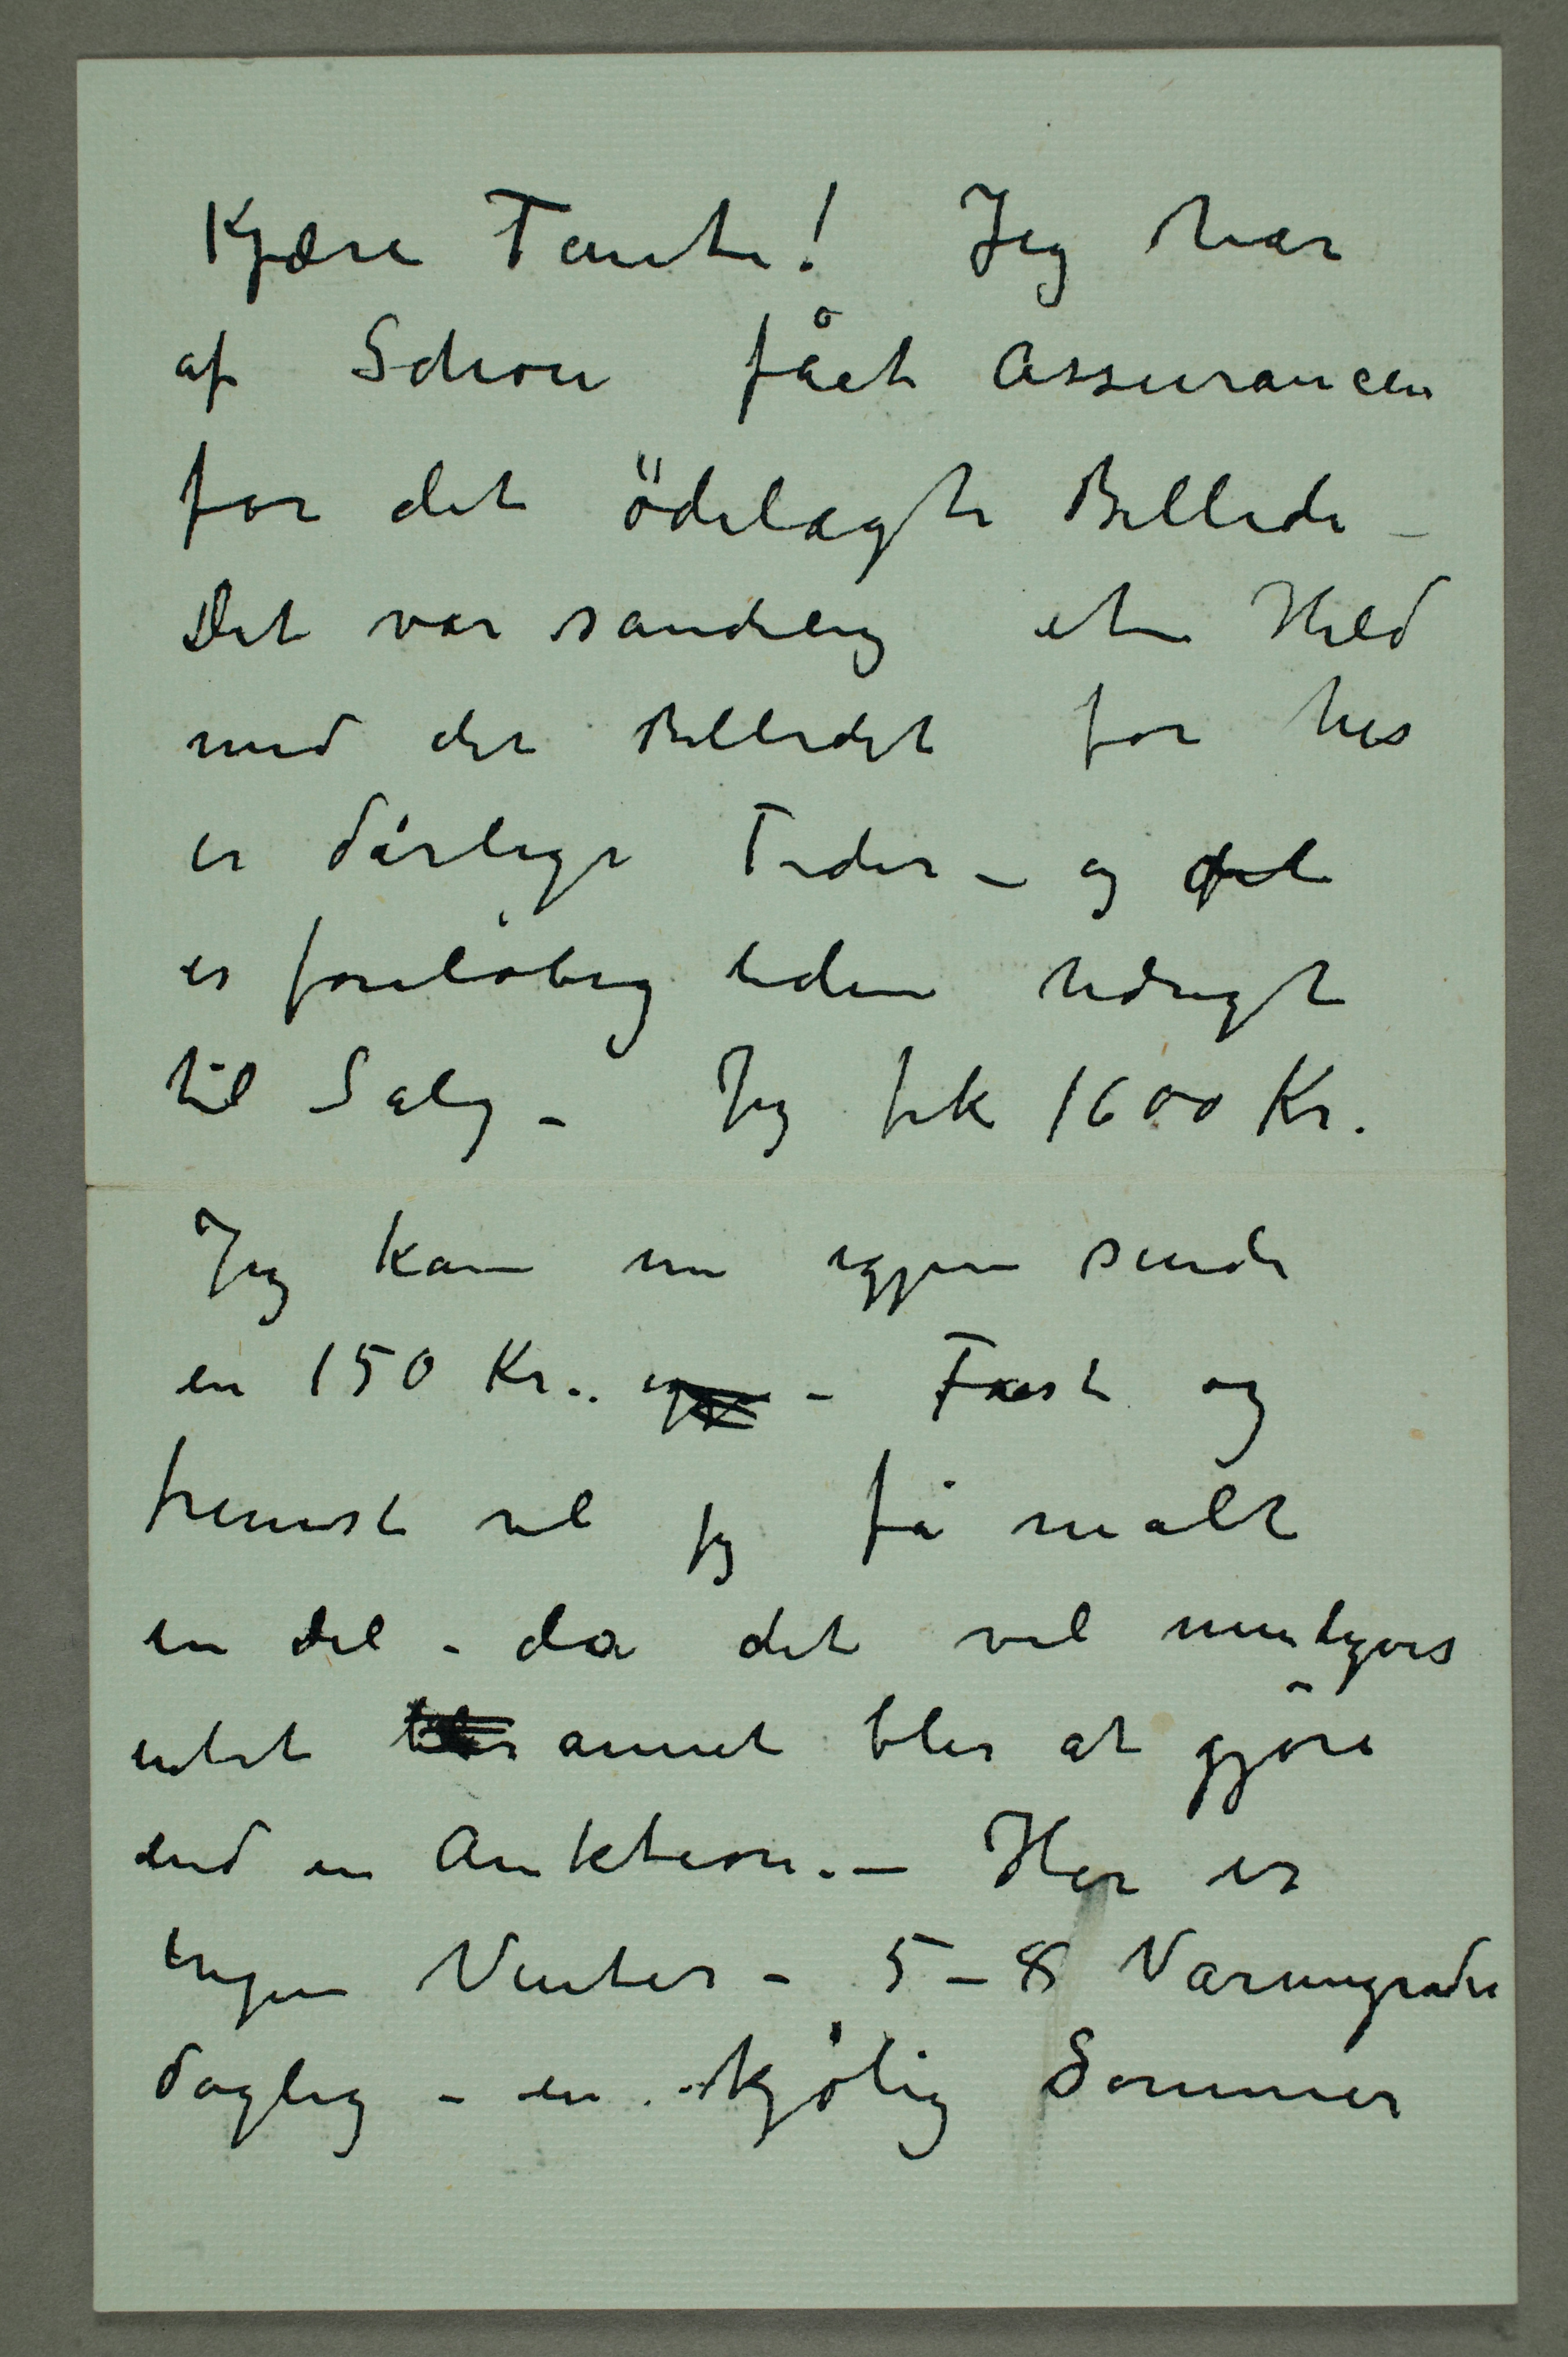 Kjære Tante! Jeg har
af Schou fået Assurancen
for det ödelagte Billede –
Det var sandelig et Held
med det Billedet for her
er dårlige Tider – og det
er foreløbig liden udsigt
til Salg – Jeg fik 1600 Kr.
Jeg kan nu igjen sende
en 150 Kr.. – Først og
fremst vil jeg få malt
en del – da det vel muligvis
intet annet blir at gjöre
end en Auktion. – Her er
ingen Vinter – 5–8 Varmegrader
daglig – en kjølig Sommer